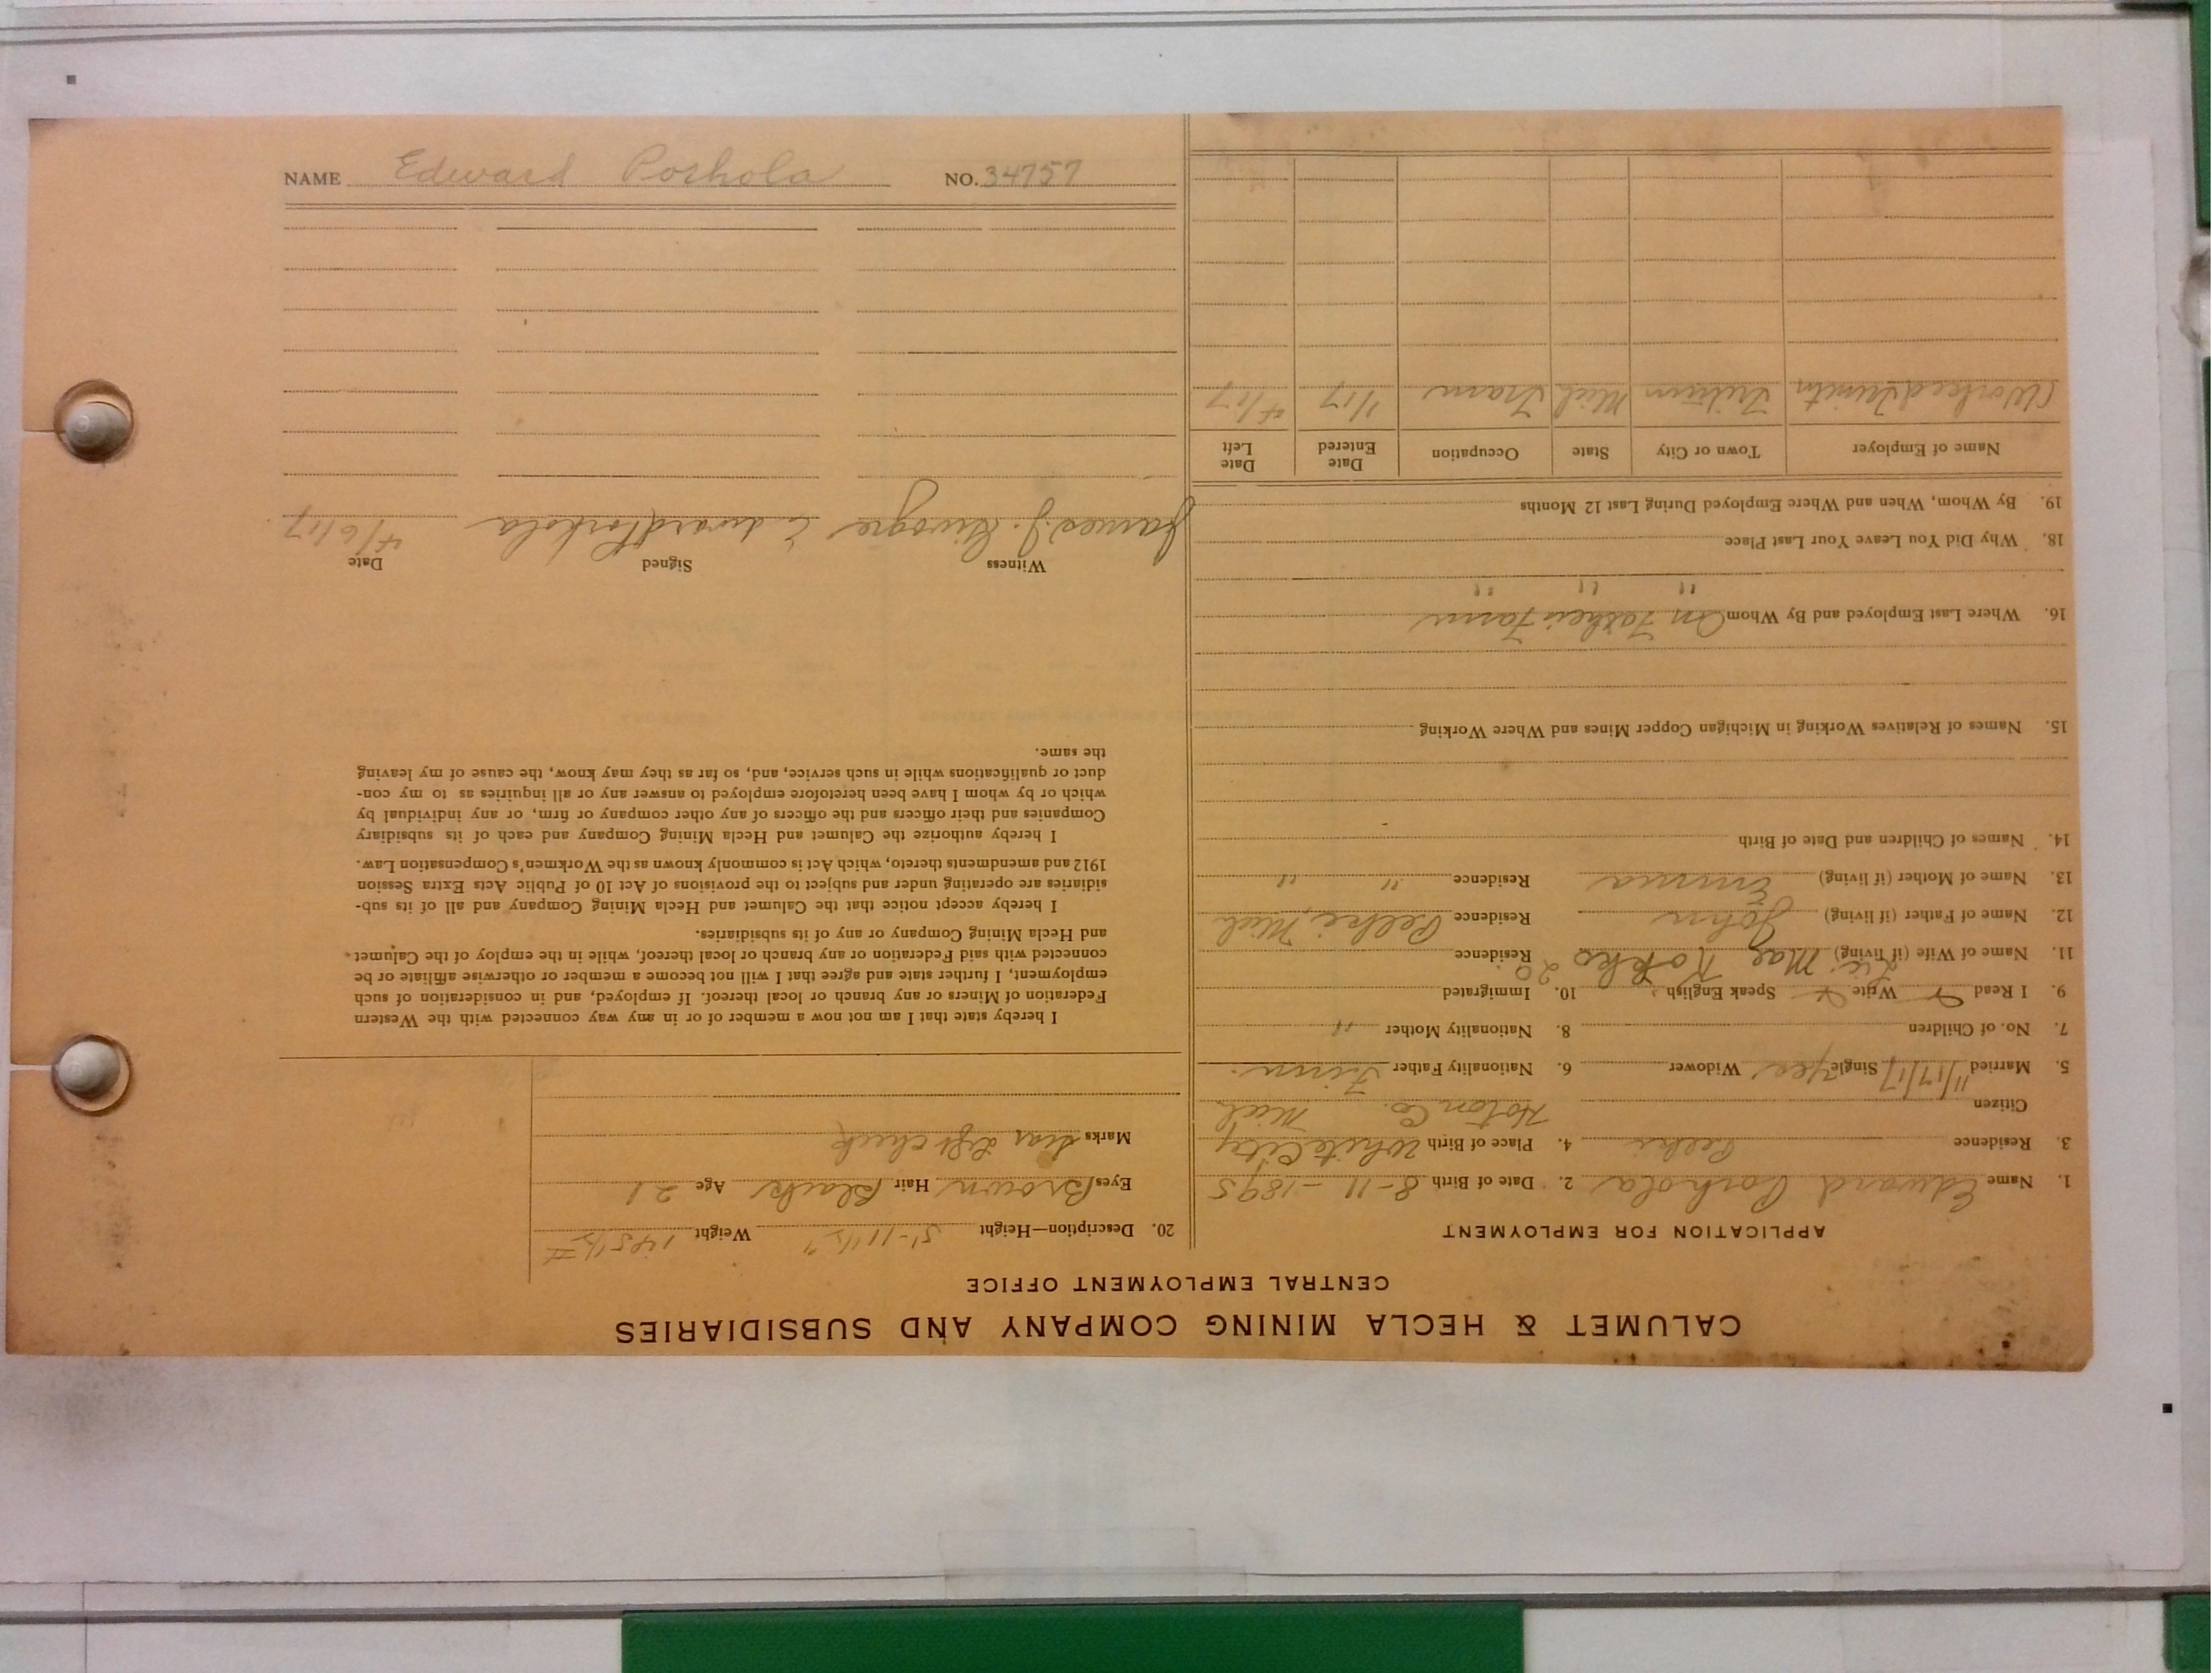 CALUMET & HECLA MINING COMPANY AND SUBSIDIARIES
CENTRAL EMPLOYMENT OFFICE
APPLICATION FOR EMPLOYMENT
1. Name Edward Porhola 2. Date of Birth 8-11-1895
3. Residence Pelkie 4. Place of Birth White City
Citizen Hoton Co. Mich
5. Married 11/17/17 Single Yes Widower 6. Nationality Father Finn.
7. No. of Children 8. Nationality Mother "
9. I Read Write Speak English 10. Immigrated
11. Name of Wife (if living) Mae Kokko 20 Residence
12. Name of Father (if living) John Residence Pelkie, Mich
13. Name of Mother (if living) Emma Residence " "
14. Names of Children and Date of Birth
15. Names of Relatives Working in Michigan Copper Mines and Where Working
16. Where Last Employed and By Whom On Fathers Farm
" " "
18. Why Did You Leave Your Last Place
19. By Whom, When and Where Employed During Last 12 Months
Name of Employer Town or City State Occupation Date Entered Date Left
Worked Mich Tram 1/17 4/17
20. Description—Height 5'-11 1/2" Weight 145 1/2 #
Eyes Brown Hair Black Age 21
Marks Scar Left cheek
I hereby state that I am not now a member of or in any way connected with the Western
Federation of Miners or any branch or local thereof. If employed, and in consideration of such
employment, I further state and agree that I will not become a member or otherwise affiliate or be
connected with said Federation or any branch or local thereof, while in the employ of the Calumet
and Hecla Mining Company or any of its subsidiaries.
I hereby accept notice that the Calumet and Hecla Mining Company and all of its sub-
sidiaries are operating under and subject to the provisions of Act 10 of Public Acts Extra Session
1912 and amendments thereto, which Act is commonly known as the Workmen's Compensation Law.
I hereby authorize the Calumet and Hecla Mining Company and each of its subsidiary
Companies and their officers and the officers of any other company or firm, or any individual by
which or by whom I have been heretofore employed to answer any or all inquiries as to my con-
duct or qualifications while in such service, and, so far as they may know, the cause of my leaving
the same.
Witness Signed Date
James J. Edward Porhola 4/6/17
NAME Edward Porhola NO. 34757